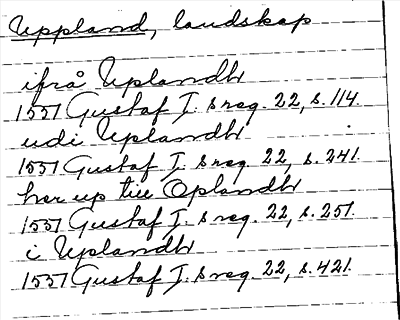 Uppland, landskap
ifrå Uplandh
1557 Gustaf I. s reg. 22, s. 114.
udi Uplandh
1557 Gustaf I. s reg. 22, s. 241.
her up till Oplandh
1557 Gustaf I. s reg. 22, s. 257.
i Uplandh
1557 Gustaf I. s reg. 22, s. 421.